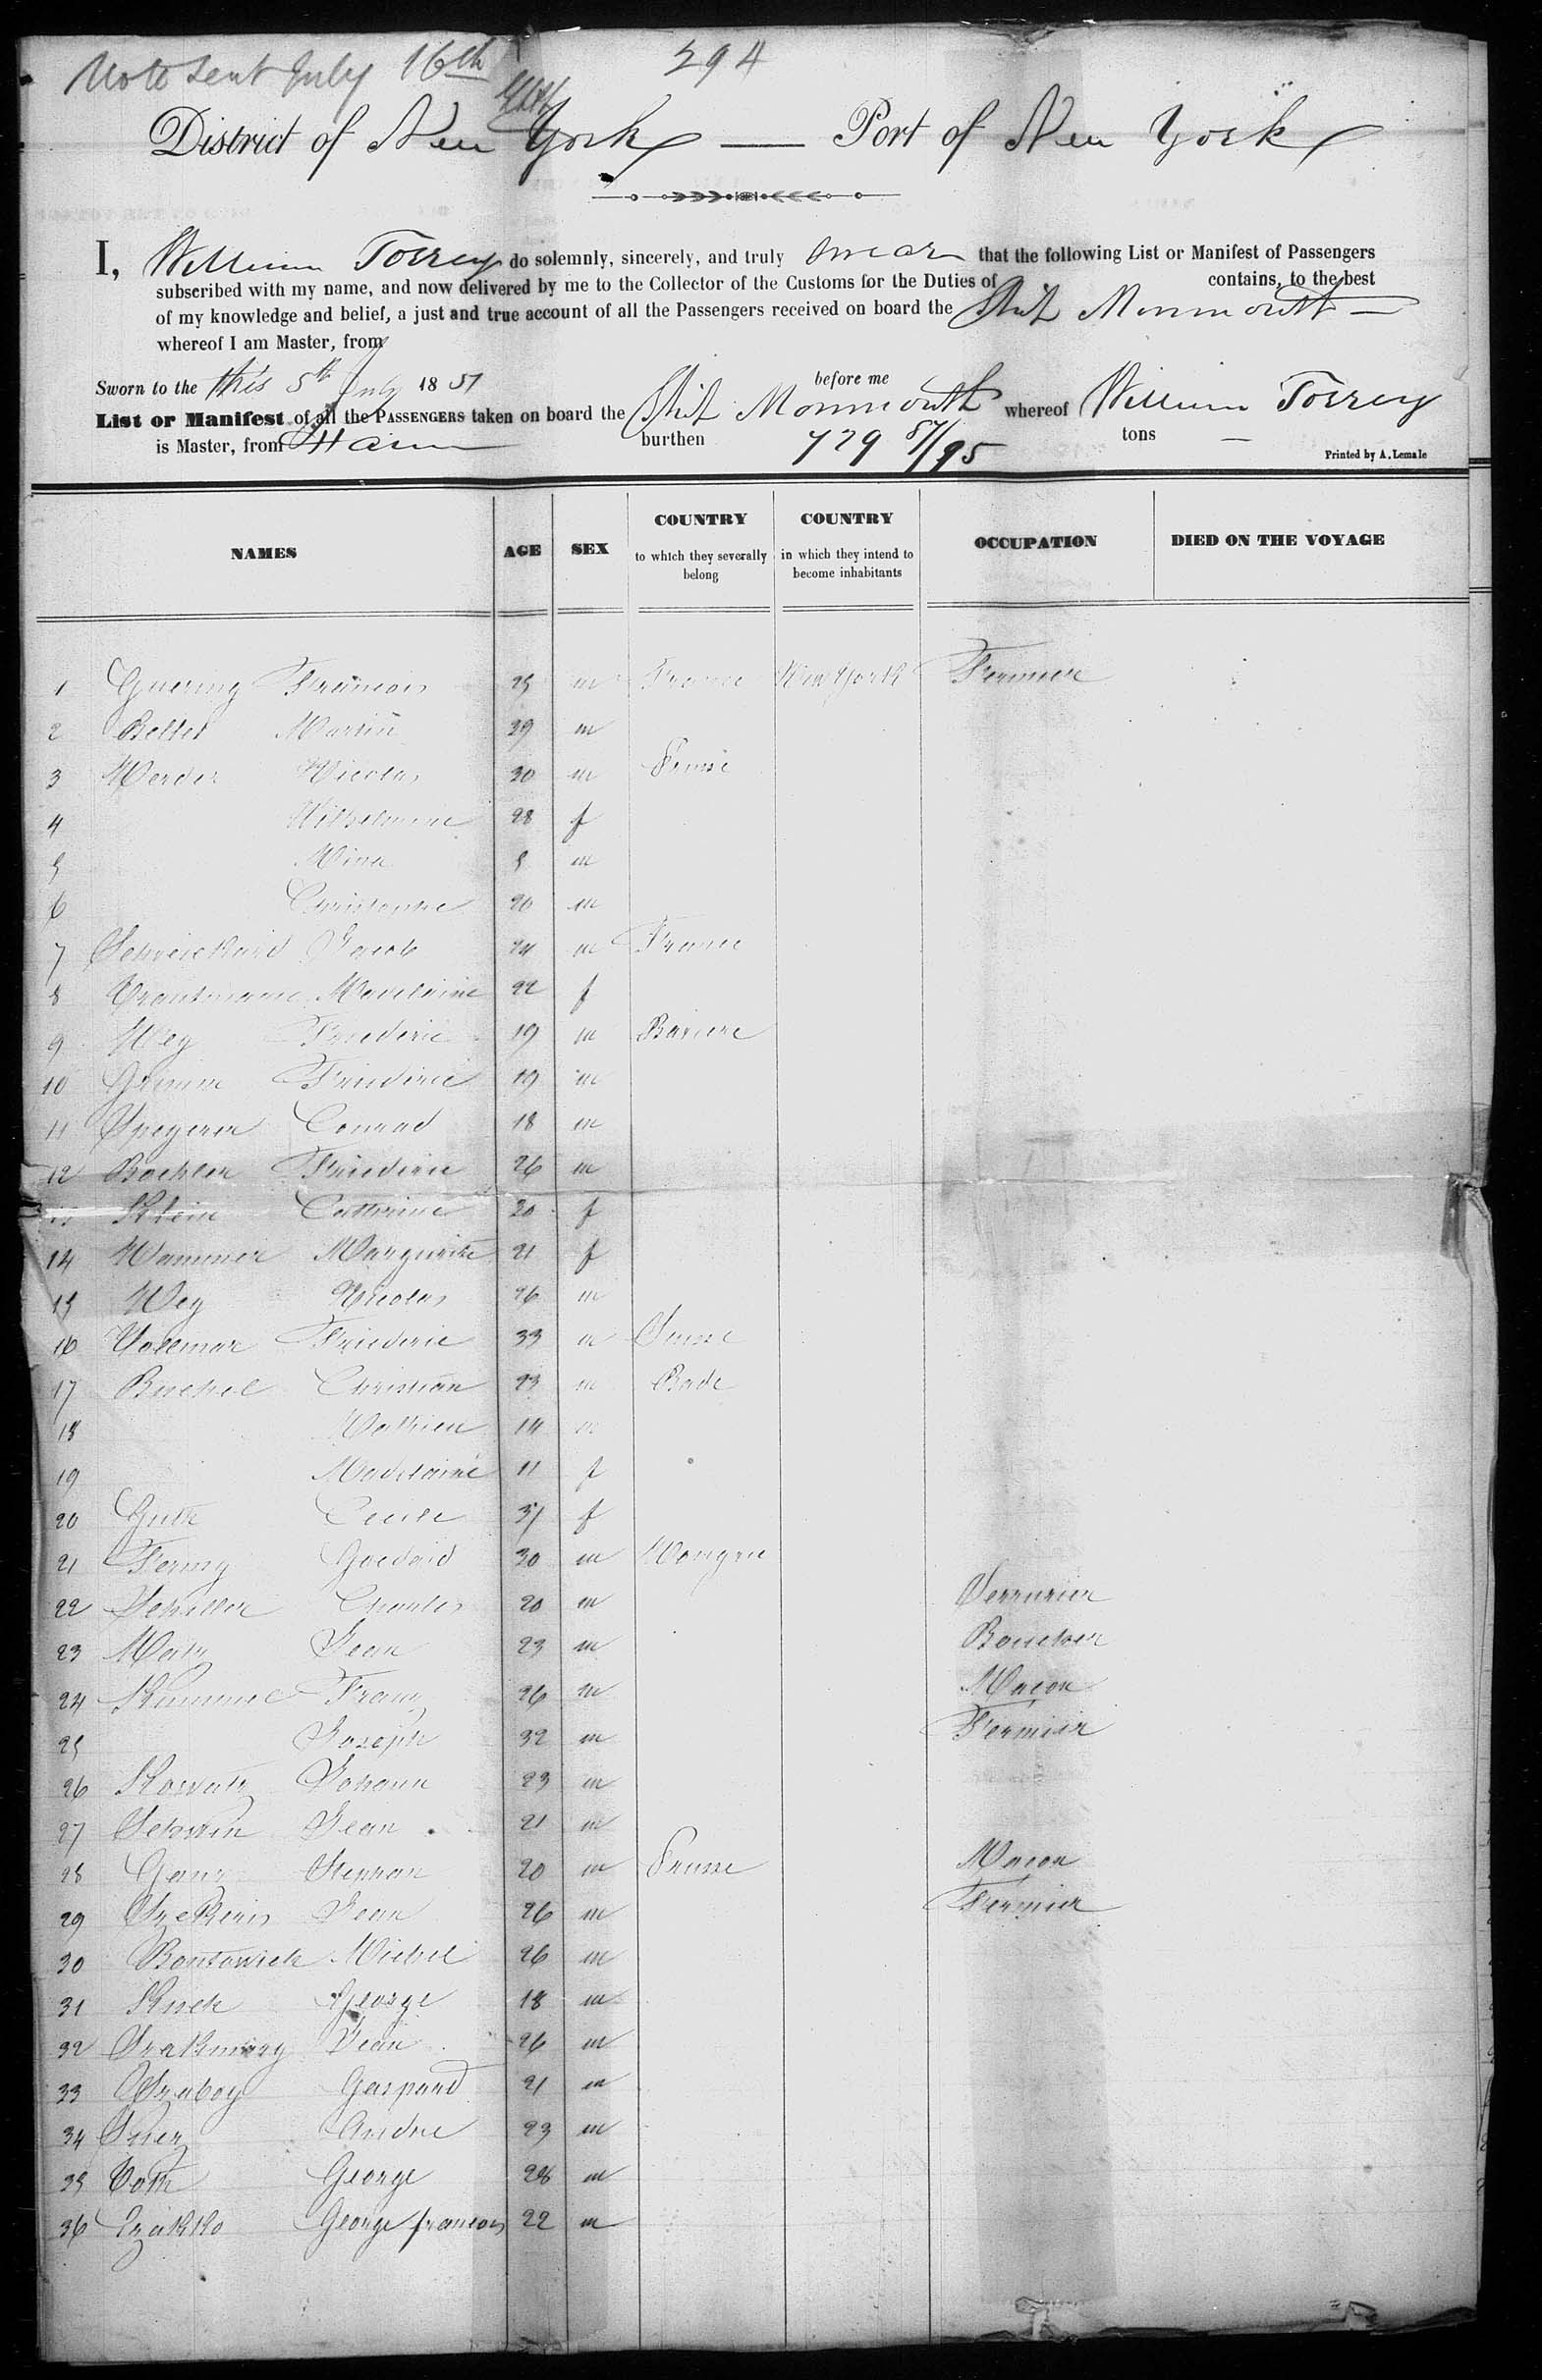 Note sent July 16th
294
District of New York — Port of New York
I, William Torrey do solemnly, sincerely, and truly swear that the following List or Manifest of Passengers
subscribed with my name, and now delivered by me to the Collector of the Customs for the Duties of contains, to the best
of my knowledge and belief, a just and true account of all the Passengers received on board the Ship Monmouth —
whereof I am Master, from
Sworn to the this 5th July 1851 before me
List or Manifest of all the PASSENGERS taken on board the Ship Monmouth whereof William Torrey
is Master, from Havre burthen 729 87/95 tons —
Printed by A. Lemale
NAMES AGE SEX COUNTRY to which they severally belong COUNTRY in which they intend to become inhabitants OCCUPATION DIED ON THE VOYAGE
1 Guering Francois 25 m France New York Fermier
2 Martin 29 m
3 Nicolas 30 m Prusse
4 Wilhelmine 28 f
5 Mina 5 m
6 Christophe 20 m
7 Jacob 24 m France
8 Madelaine 22 f
9 Wey Friederic 19 m Baviere
10 Grimm Friederic 19 m
11 Speyerer Conrad 18 m
12 Boehler Friederic 26 m
13 Klein Catherine 20 f
14 Hammer Marguerite 21 f
15 Wey Nicolas 26 m
16 Vollmar Friederic 33 m Prusse
17 Buchel Christian 23 m Bade
18 Mathieu 14 m
19 Madelaine 11 f
20 Guth Cecile 37 f
21 30 m Hongrie
22 Schiller Charles 20 m Serrurier
23 Jean 23 m Boucher
24 Kummel Franz 26 m Macon
25 Joseph 32 m Fermier
26 Kowatz Johann 23 m
27 Jean 21 m
28 Ganz Stephan 20 m Prusse Macon
29 Jean 26 m Fermier
30 Michel 26 m
31 George 18 m
32 Jean 26 m
33 Gaspard 21 m
34 Andre 23 m
35 Toth George 28 m
36 George francois 22 m